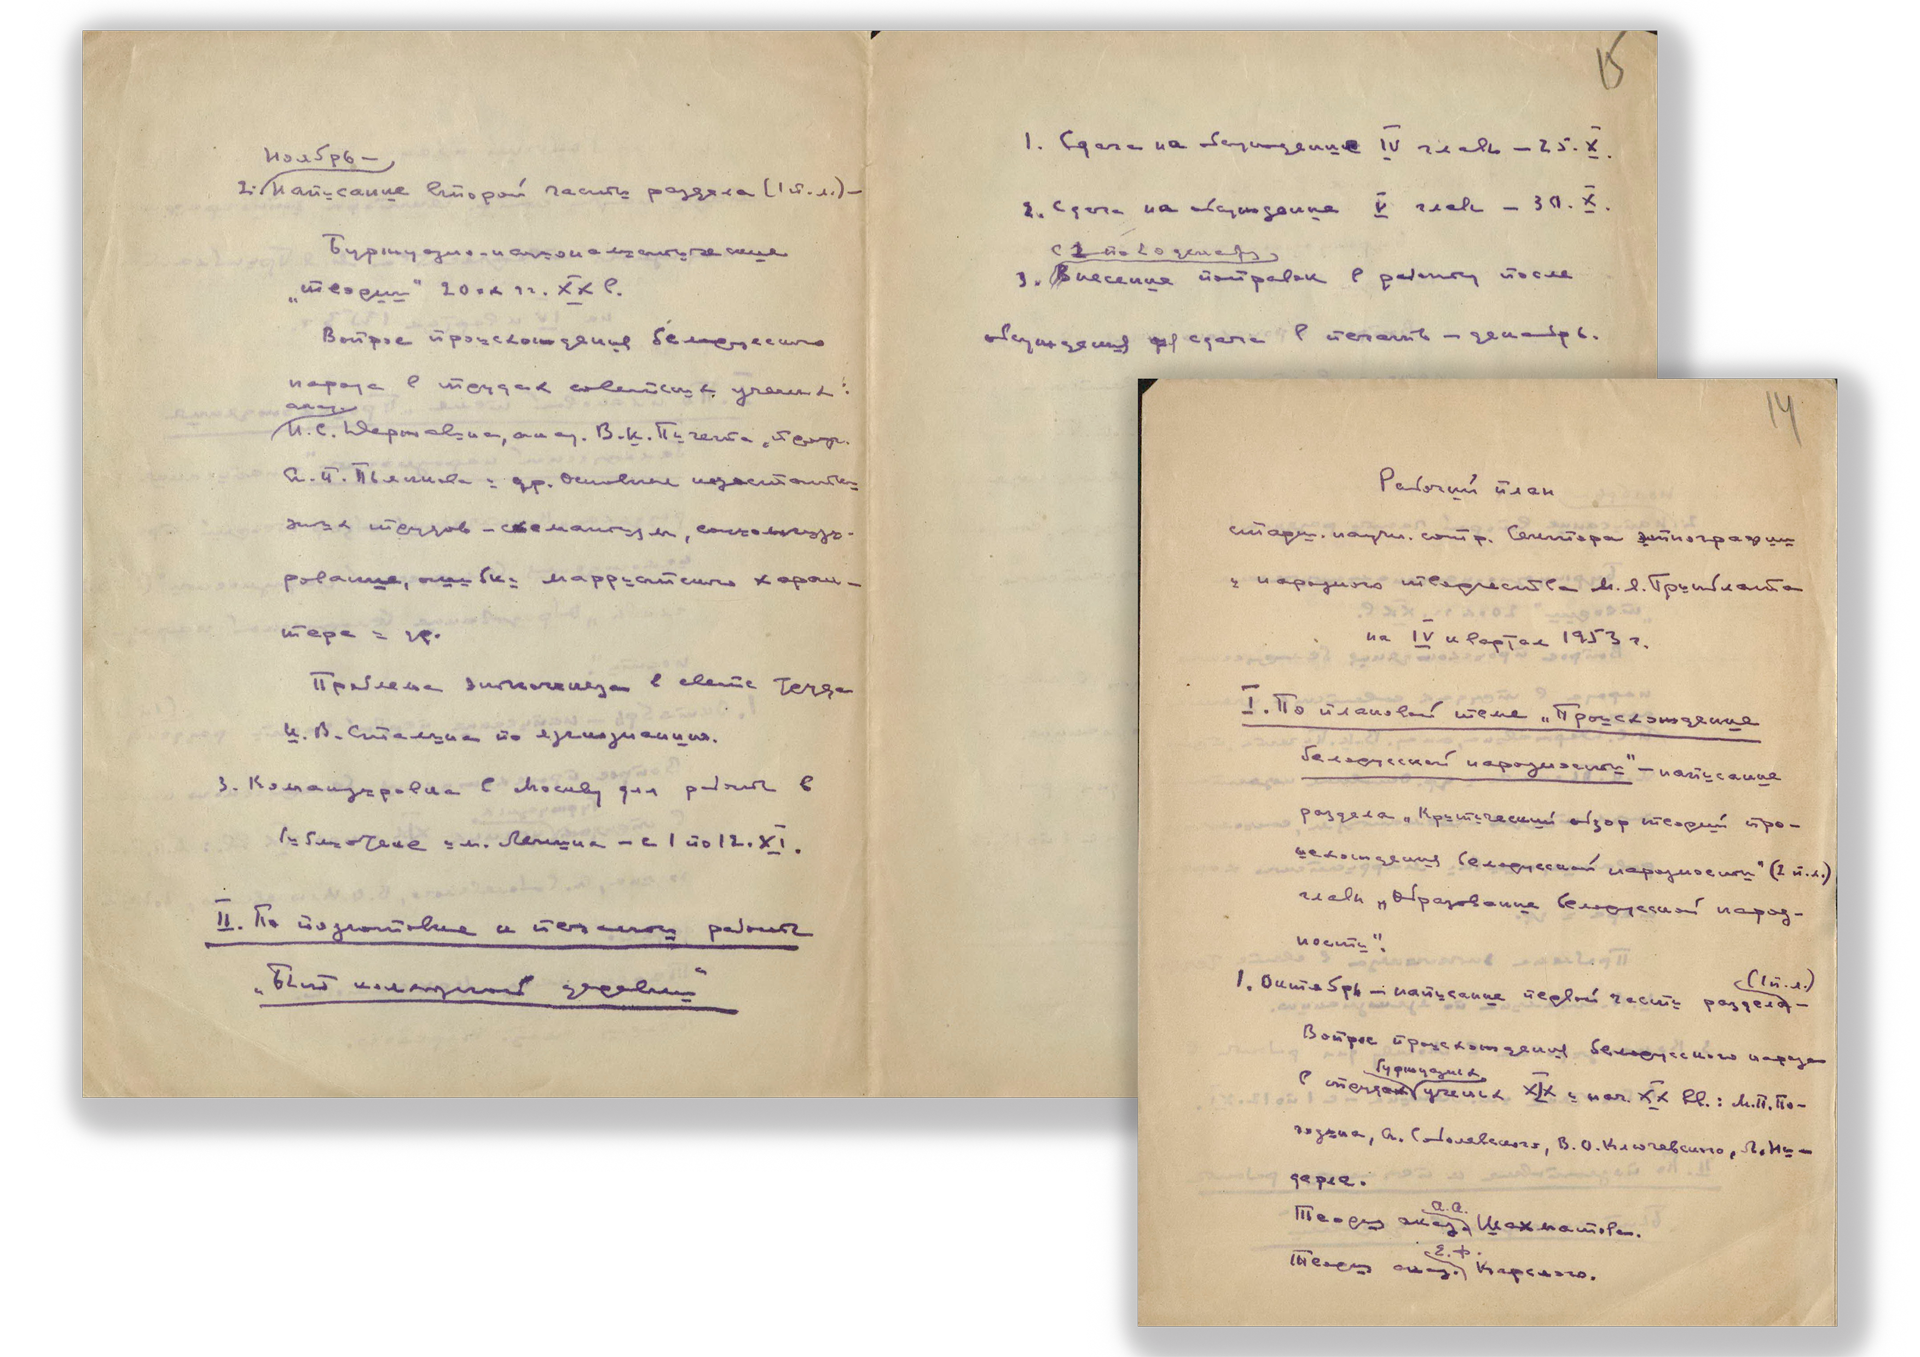 Ноябрь –
2. Написание второй части раздела (1 п.л.) –
Буржуазно-националистические
„теории" 20-х гг. XX в.
Вопрос происхождения белорусского
народа в трудах советских ученых:
акад.
Н.С. Державина, акад. В.К. Пичета, проф.
А.П. Пьянкова и др. Основные недостатки
этих трудов – схематизм, социологизи-
рование, ошибки марристского харак-
тера и др.
Проблема этногенеза в свете труда
И.В. Сталина по языкознанию.
3. Командировка в Москву для работы в
библиотеке им. Ленина – с 1 по 12.XI.
II. По подготовке к печати работы
„Быт колхозной деревни"
15
1. Сдача на обсуждение IV главы – 25.X.
2. Сдача на обсуждение V главы – 30.X.
с 1 по 20 декабря
3. Внесение поправок в работу после
обсуждения и сдача в печать – декабрь.
14
Рабочий план
старш. научн. сотр. Сектора этнографии
и народного творчества М.Я. Гринблата
на IV квартал 1953 г.
I. По плановой теме „Происхождение
белорусской народности" – написание
раздела „Критический обзор теорий про-
исхождения белорусской народности" (2 п.л.)
главы „Образование белорусской народ-
ности".
(1 п.л.)
1. Октябрь – написание первой части раздела –
Вопрос происхождения белорусского народа
буржуазных
в трудах ученых XIX и нач. XX вв.: М.П. По-
година, А. Соболевского, В.О. Ключевского, Л. Ни-
дерле.
А.А.
Теория акад. Шахматова.
Е.Ф.
Теория акад. Карского.